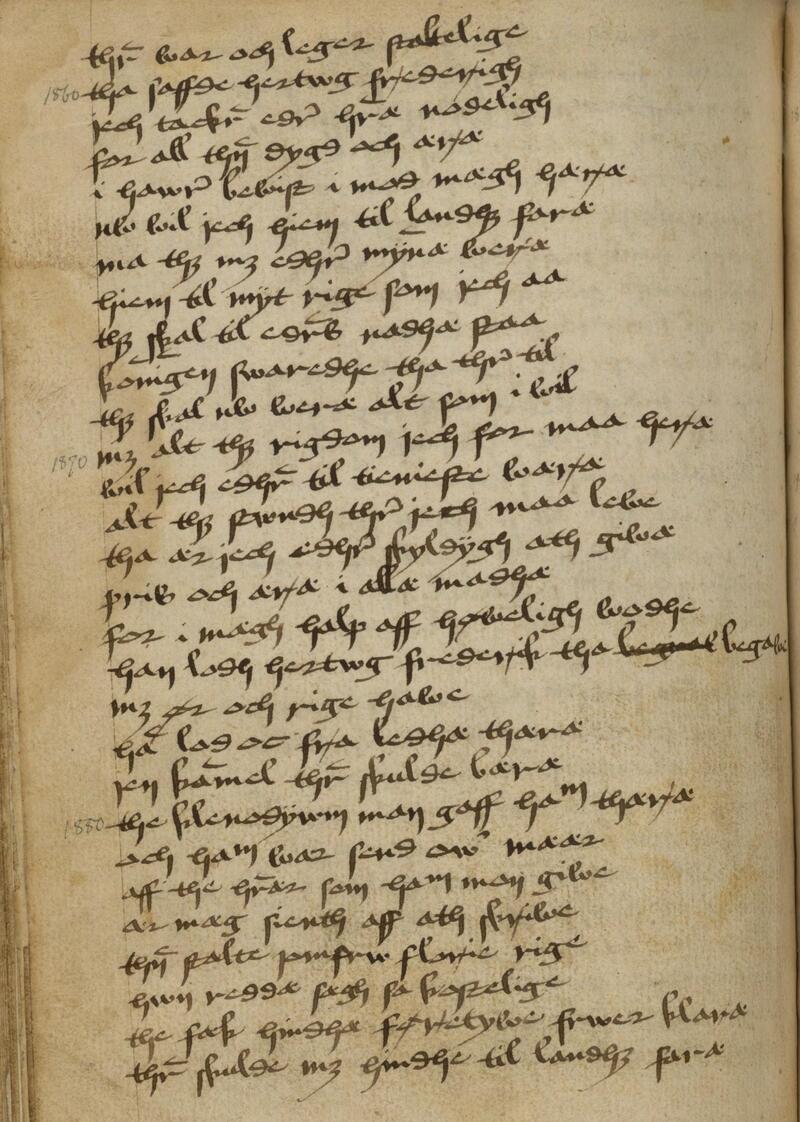 thr̄ war och leger staltelige
1860 tha saffde hertwg frederigh
jech tackr̄ edr̄ hr̄æ nodeligh
for all thn̄ dygd och æræ
i hawr̄ bewist i mod mægh hæræ
nw wil jech hiem til landhꝫ faræ
ma thꝫ mꝫ edhr̄ mÿnæ weræ
hiem til mÿt rige som jech aa
thꝫ skal til edr̄s nadhæ staa
koni̅gen swaredhe tha thr̄ til
thꝫ skal nw weræ alt som i wil
1870 mꝫ alt thꝫ rigdom jech for maa heræ
wil jech edhr̄ til tienieste wæræ
alt thꝫ stwndh thr̄ jech maa lewe
tha ær jech edhr̄ skyldÿgh ath giwæ
pris och æræ i allæ madhæ
for i mægh halp aff høweligh wodhe
han lodh hertwg frederik tha begawe
mꝫ ør och rige hawe
ha̅ lod oc fra ledhæ thæræ
jen kamel thr̄ skulde bæræ
1880 the klenodÿwm man gaff haᵐ thæræ
och haᵐ war send ow̓ mæær
aff the hr̄ær som haᵐ mon giwe
ær mæg sienth aff ath skriwe
thn̄ stalte jomfrw florie rige
hwn reddæ sægh sa kostelige
the fæk hindhæ føretywe frwer klaræ
thr̄ skulde mꝫ hindhe til landhꝫ faræ